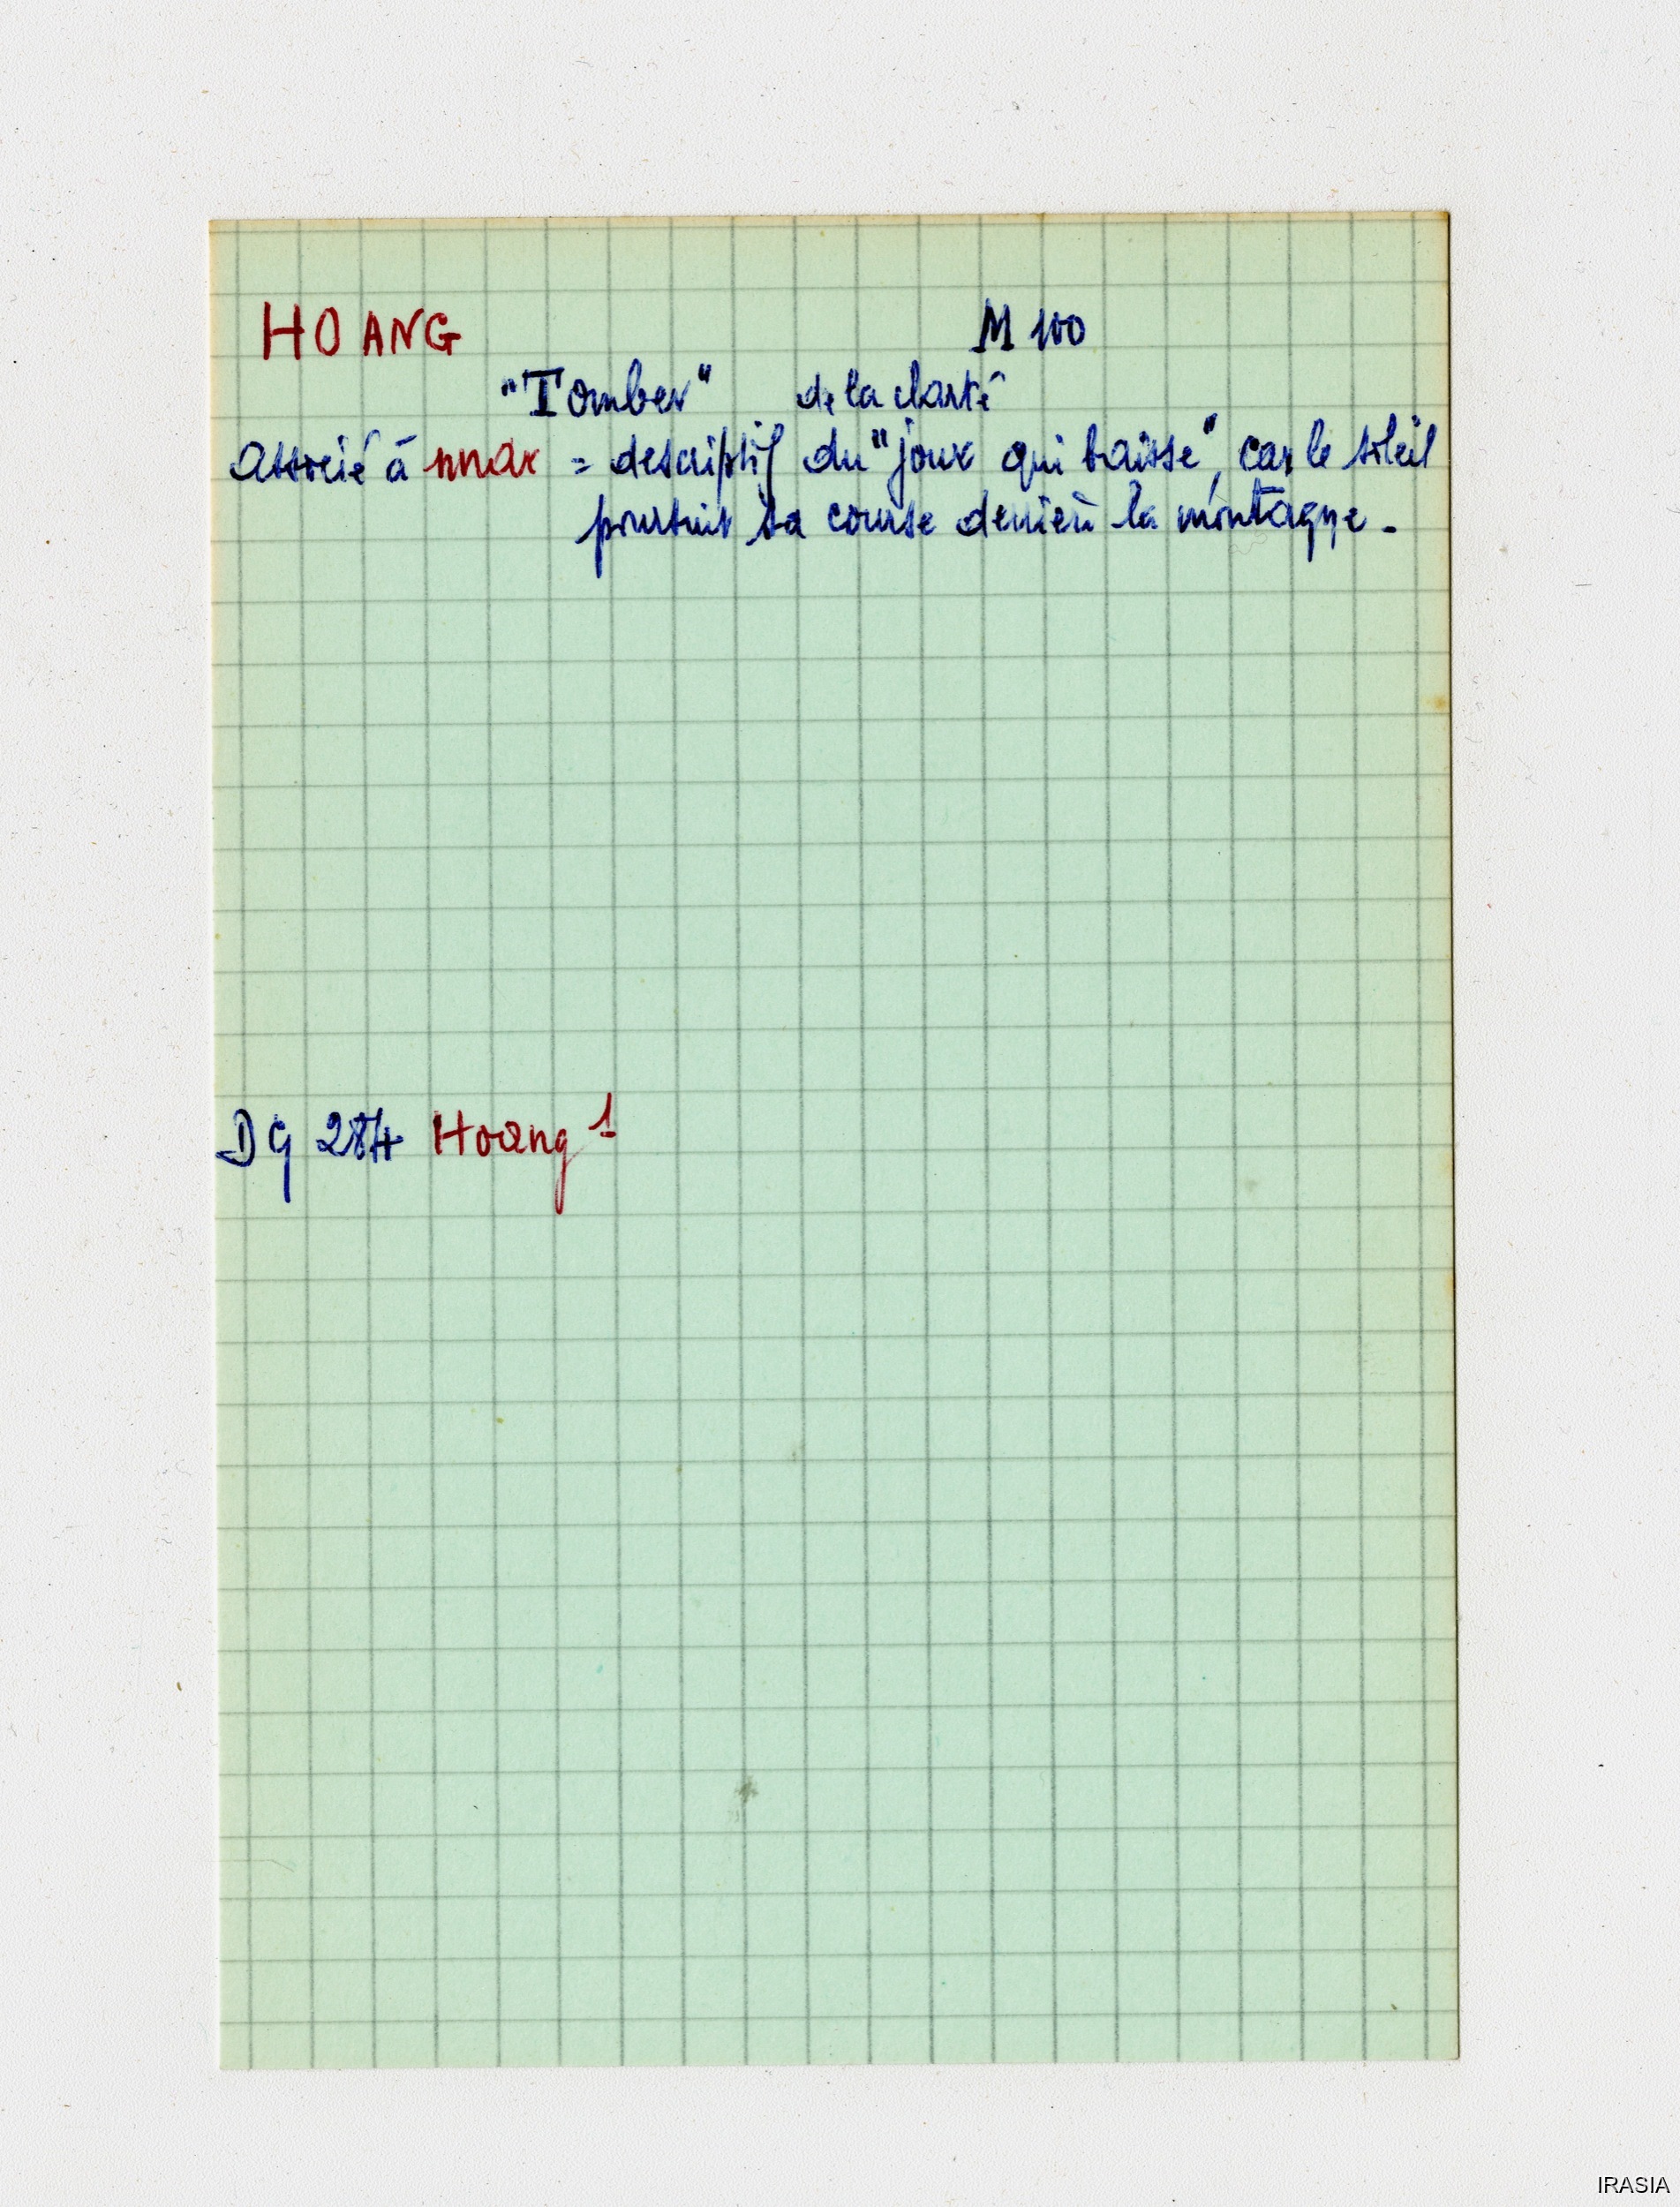 HOANG M 100
"Tomber" de la clarté
associé à nnar = descriptif du "jour qui baisse", car le soleil
poursuit sa course derrière la montagne -
DG 284 Hoang 1
IRASIA